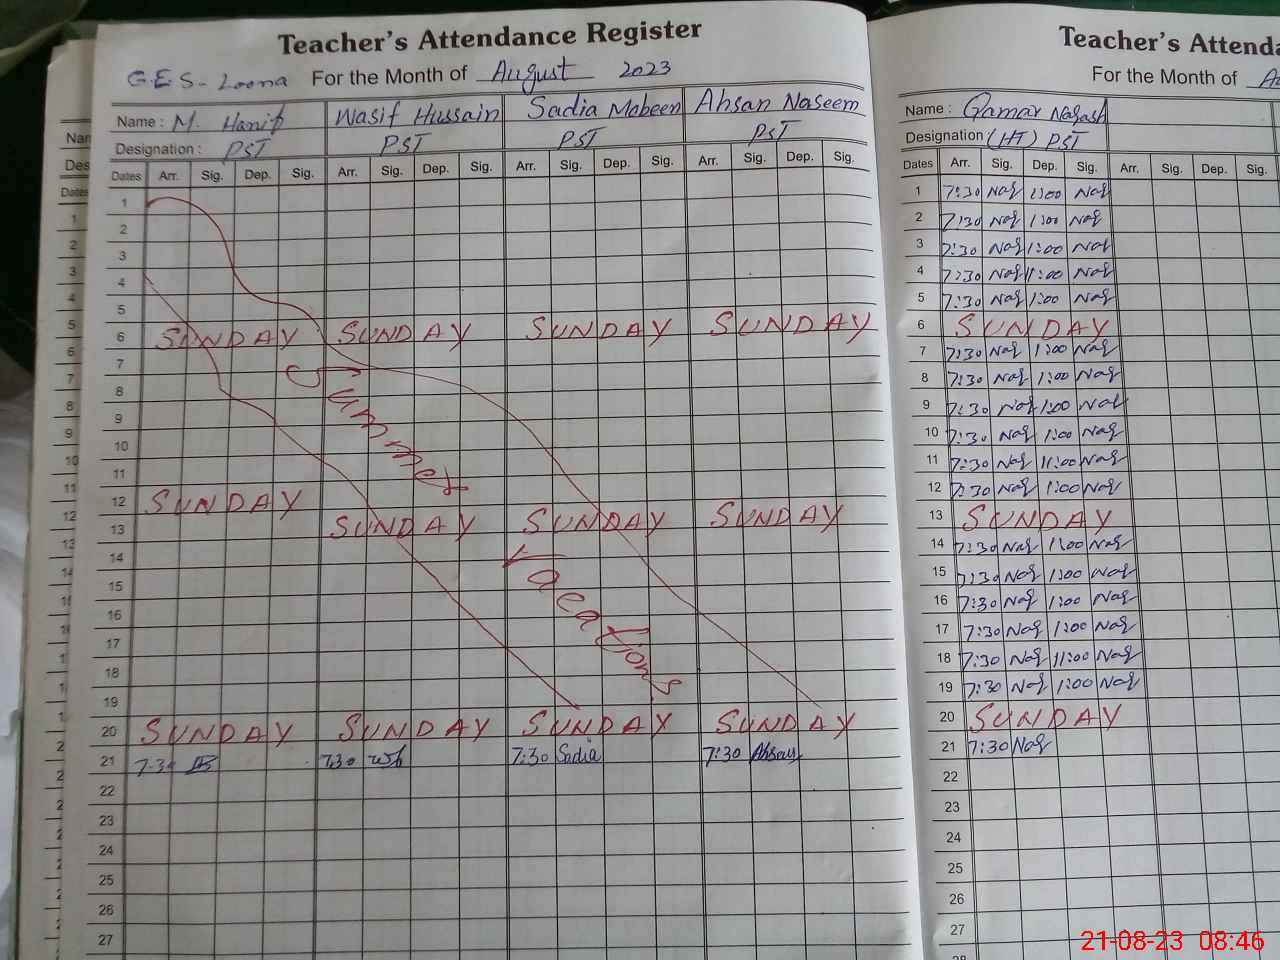 Teacher's Attendance Register
G.E.S- Loona For the Month of August 2023
Name : M. Hanif Wasif Hussain Sadia Mabeen Ahsan Naseem
Designation : PST PST PST PST
Dates Arr. Sig. Dep. Sig. Arr. Sig. Dep. Sig. Arr. Sig. Dep. Sig. Arr. Sig. Dep. Sig.
1
2
3
4
5
6 SUNDAY SUNDAY SUNDAY SUNDAY
7
8
9
10
11
12 SUNDAY
13 SUNDAY SUNDAY SUNDAY
Summer
Vacations
14
15
16
17
18
19
20 SUNDAY SUNDAY SUNDAY SUNDAY
21 7:30 7:30 7:30 Sadia 7:30 Ahsan
22
23
24
25
26
27
Teacher's Attenda
For the Month of Au
Name : Qamar Naqash
Designation (HT) PST
Dates Arr. Sig. Dep. Sig. Arr. Sig. Dep. Sig.
1 7:30 Naq 1:00 Naq
2 7:30 Naq 1:00 Naq
3 7:30 Naq 1:00 Naq
4 7:30 Naq 11:00 Naq
5 7:30 Naq 1:00 Naq
6 SUNDAY
7 7:30 Naq 1:00 Naq
8 7:30 Naq 1:00 Naq
9 7:30 Naq 1:00 Naq
10 7:30 Naq 1:00 Naq
11 7:30 Naq 11:00 Naq
12 7:30 Naq 1:00 Naq
13 SUNDAY
14 7:30 Naq 1:00 Naq
15 7:30 Naq 1:00 Naq
16 7:30 Naq 1:00 Naq
17 7:30 Naq 1:00 Naq
18 7:30 Naq 11:00 Naq
19 7:30 Naq 1:00 Naq
20 SUNDAY
21 7:30 Naq
22
23
24
25
26
27
21-08-23 08:46